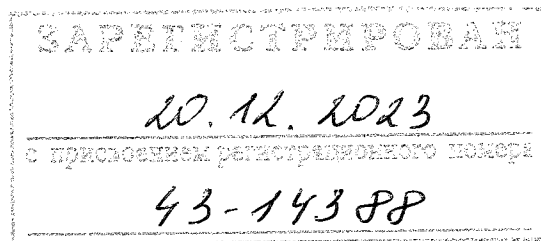 ЗАРЕГИСТРИРОВАН
20.12.2023
с присвоением регистрационного номера
43-14388